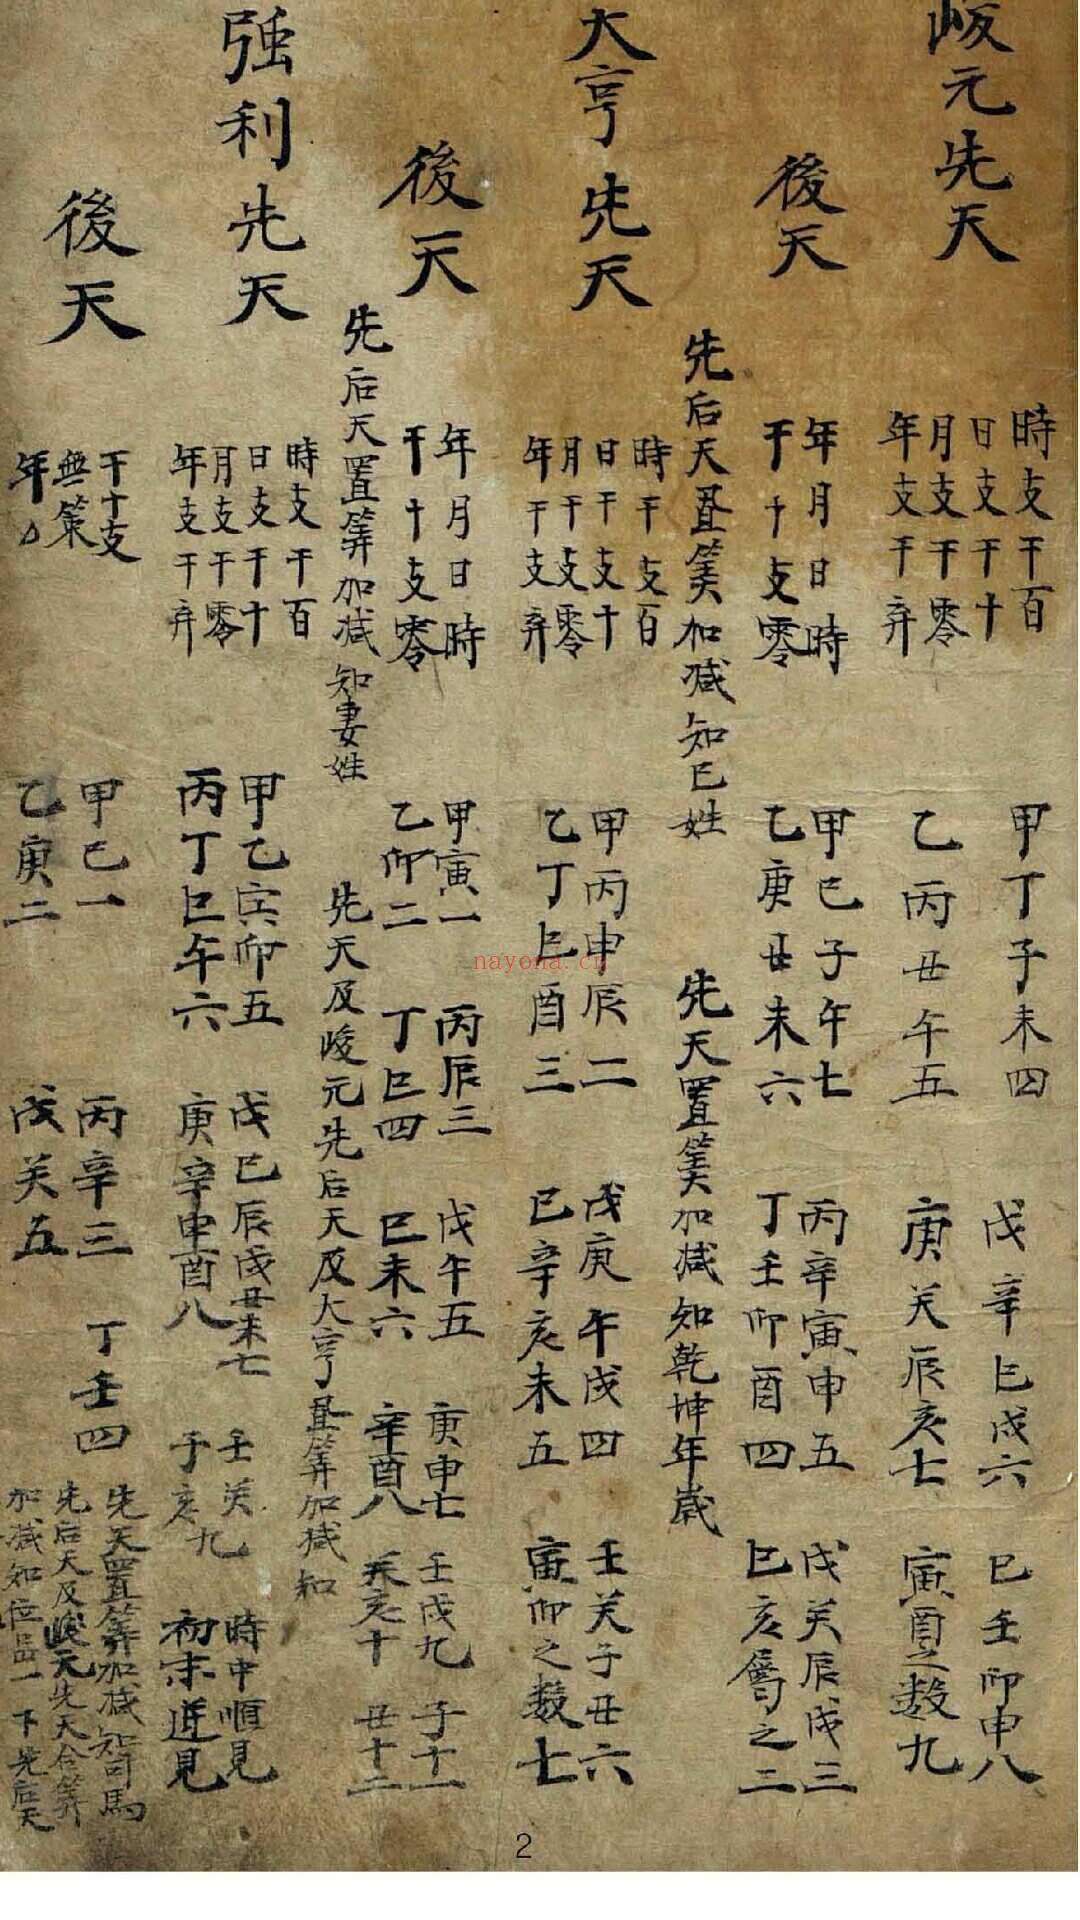 元先天
時支干百
日支干十
月支干零
年支干弃
甲丁子未四
乙丙丑午五
戊辛巳戌六
庚关辰亥七
己壬卯申八
寅酉之数九
後天
年月日時
干十支零
甲己子午七
乙庚丑未六
丙辛寅申五
丁壬卯酉四
戊关辰戌三
巳亥屬之二
先后天置筭加减知己姓
先天置筭加减知乾坤年歲
大亨先天
時干支百
日干支十
月干支零
年干支弃
甲丙申辰二
乙丁巳酉三
戊庚午戌四
己辛亥未五
壬关子丑六
寅卯之数七
後天
年月日時
干十支零
甲寅一
乙卯二
丙辰三
丁巳四
戊午五
己未六
庚申七
辛酉八
壬戌九
癸亥十
子十一
丑十二
先后天置筭加减知妻姓
先天及峻元先后天及大亨置筭加减知
強利先天
時支干百
日支干十
月支干零
年支干弃
甲乙寅卯五
丙丁巳午六
戊己辰戌丑未七
庚辛申酉八
壬关
子亥九
時中順見
初末逆見
後天
干十支
無策
年
甲己一
乙庚二
丙辛三
丁壬四
戊关五
先天置筭加减知司馬
先后天及峻元先天合筭
加减知位品一下先后天
nayona.cn
2